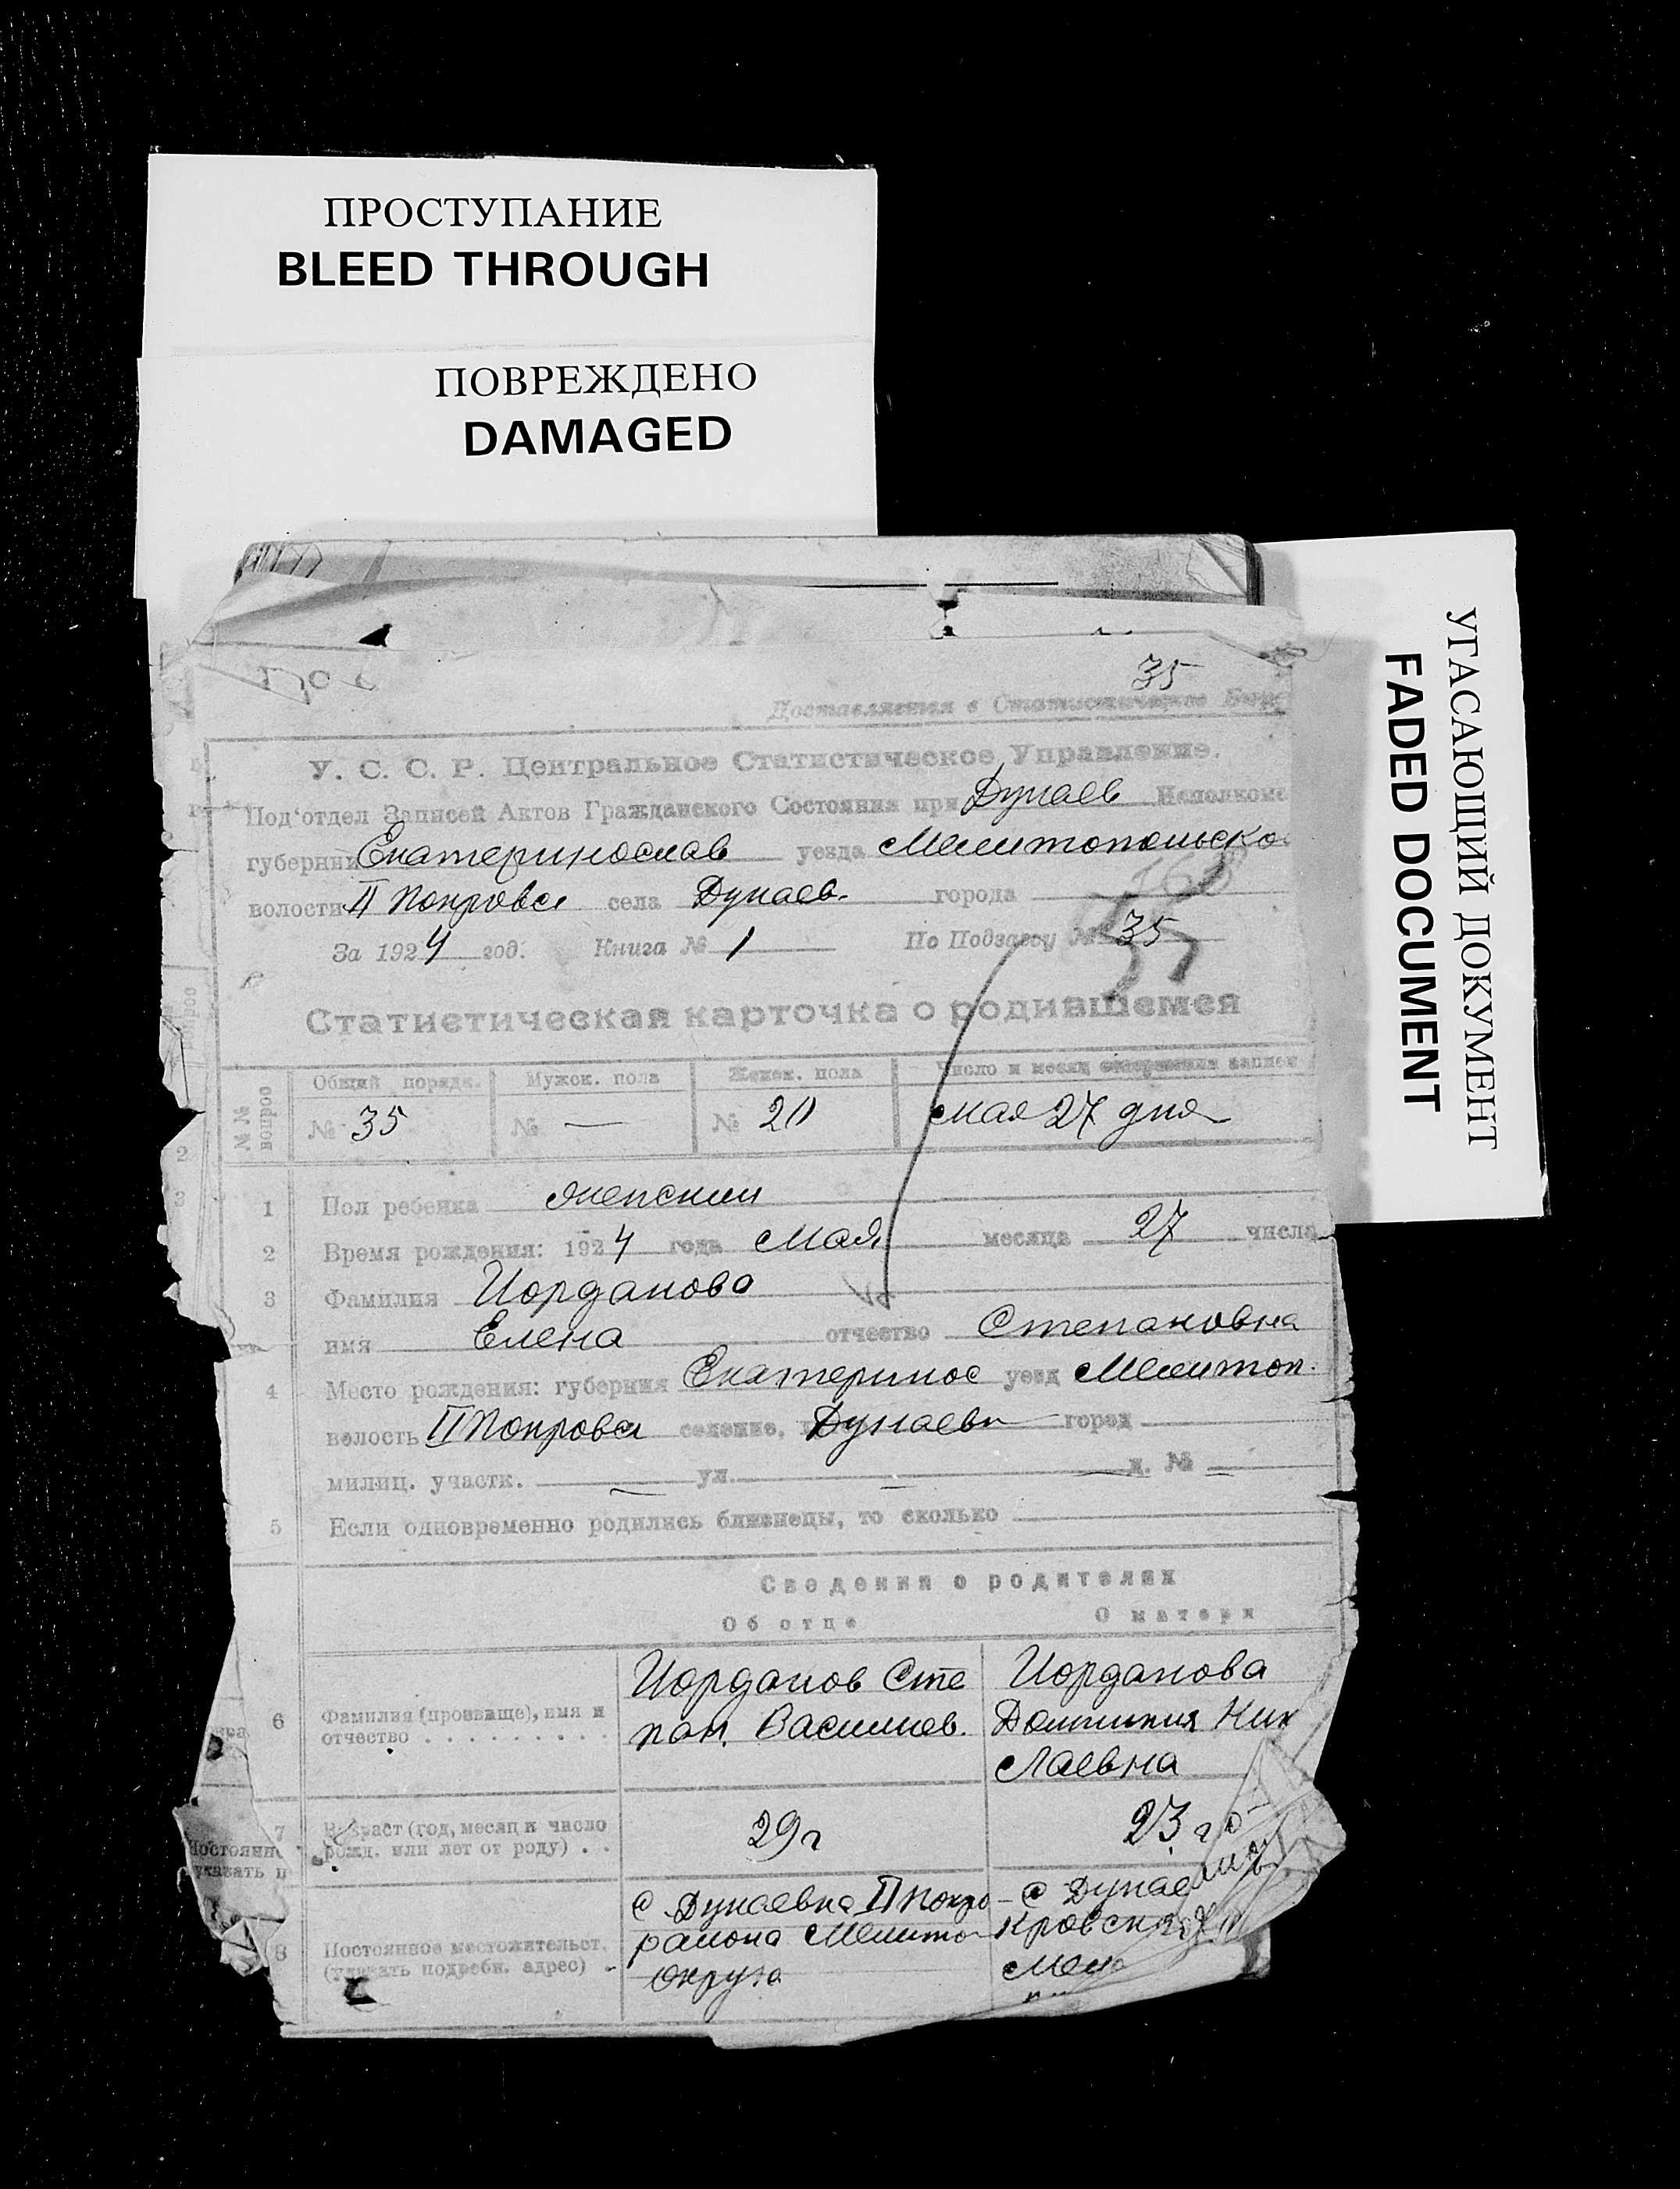 ПРОСТУПАНИЕ
BLEED THROUGH
ПОВРЕЖДЕНО
DAMAGED
УГАСАЮЩИЙ ДОКУМЕНТ
FADED DOCUMENT
35
Доставляется в Статистическое Бюро
У. С. С. Р. Центральное Статистическое Управление.
Под'отдел Записей Актов Гражданского Состояния при Дунаев Исполкоме
губернии Екатеринослав уезда Мелитопольско
волости II Покровск села Дунаев. города
За 1924 год. Книга № 1 По Подзагсу № 35
Статистическая карточка о родившемся
№№ вопрос
Общий порядк. Мужск. пола Женск. пола Число и месяц совершения записи
№ 35 № — № 20 мая 27 дня
1 Пол ребенка женский
2 Время рождения: 1924 года Мая месяца 27 числа
3 Фамилия Иорданова
имя Елена отчество Степановна
4 Место рождения: губерния Екатеринос уезд Мелитоп.
волость II Покровск селение, Дунаевк город
милиц. участк. — ул. — д. № —
5 Если одновременно родились близнецы, то сколько
Сведения о родителях
Об отце О матери
6 Фамилия (прозвище), имя и
отчество . . . . . . . . .
Иорданов Сте
пан. Василиев.
Иорданова
Домникия Ник
лаевна
7 Возраст (год, месяц и число
рожд. или лет от роду) . .
29 г
23 го
8 Постоянное местожительст.
(указать подробн. адрес) .
с Дунаевка II Покро
района Мелито
округа
с Дунае
кровск
Мел